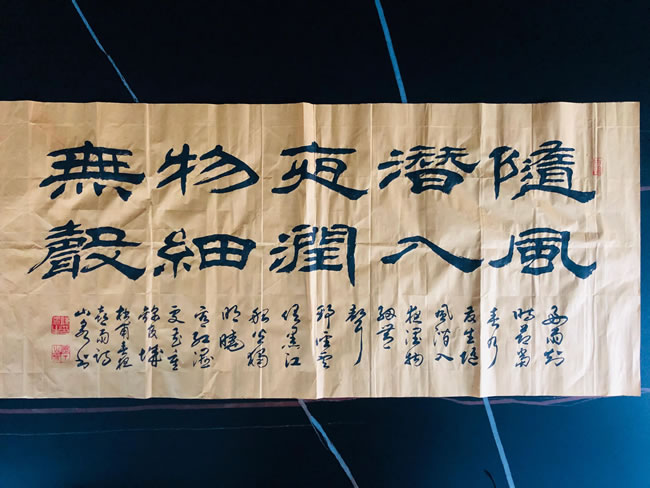 隨風
潛入
夜潤
物細
無聲
好雨知
時節當
春乃
發生隨
風潛入
夜潤物
細無
聲
野徑雲
俱黑江
船火獨
明曉
看紅濕
處花重
錦官城
杜甫春夜
喜雨詩